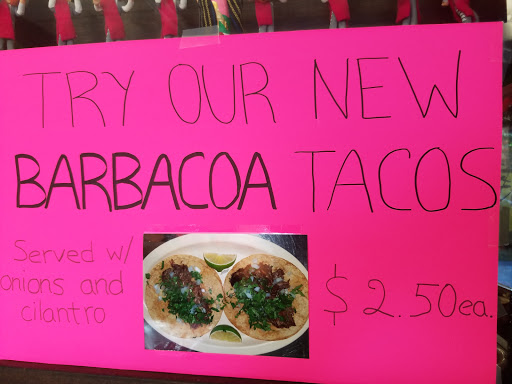 TRY OUR NEW
BARBACOA TACOS
Served w/
onions and
cilantro
$2.50ea.